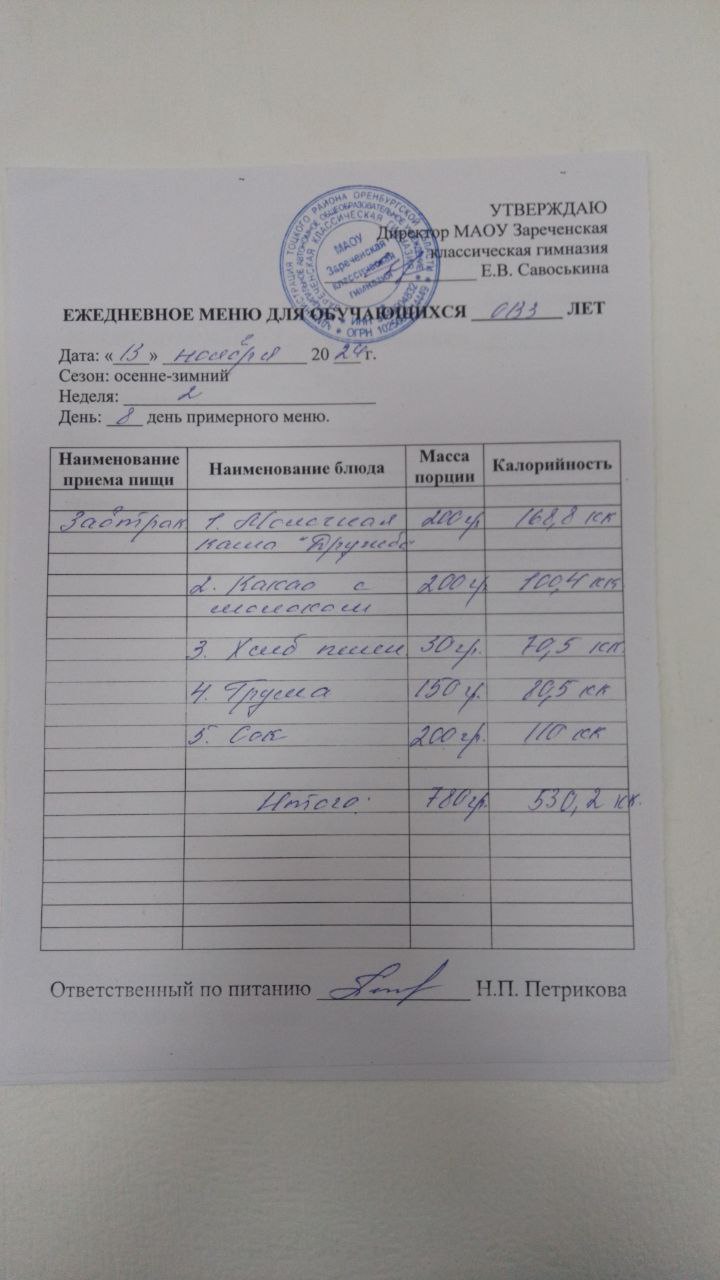 УТВЕРЖДАЮ
Директор МАОУ Зареченская
классическая гимназия
Е.В. Савоськина
МАОУ
Зареченская
классическая
гимназия
ЕЖЕДНЕВНОЕ МЕНЮ ДЛЯ ОБУЧАЮЩИХСЯ ОВЗ ЛЕТ
Дата: «13» ноября 2024 г.
Сезон: осенне-зимний
Неделя: 2
День: 8 день примерного меню.
Наименование приема пищи Наименование блюда Масса порции Калорийность
Завтрак 1. Молочная 200 гр 168,8 кк
каша "Дружба
2. Какао с 200 гр. 100,4 кк
молоком
3. Хлеб пшен. 30 гр. 70,5 кк
4. Груша 150 г. 80,5 кк
5. Сок 200 гр. 110 кк
Итого: 780 гр. 530,2 кк.
Ответственный по питанию Н.П. Петрикова